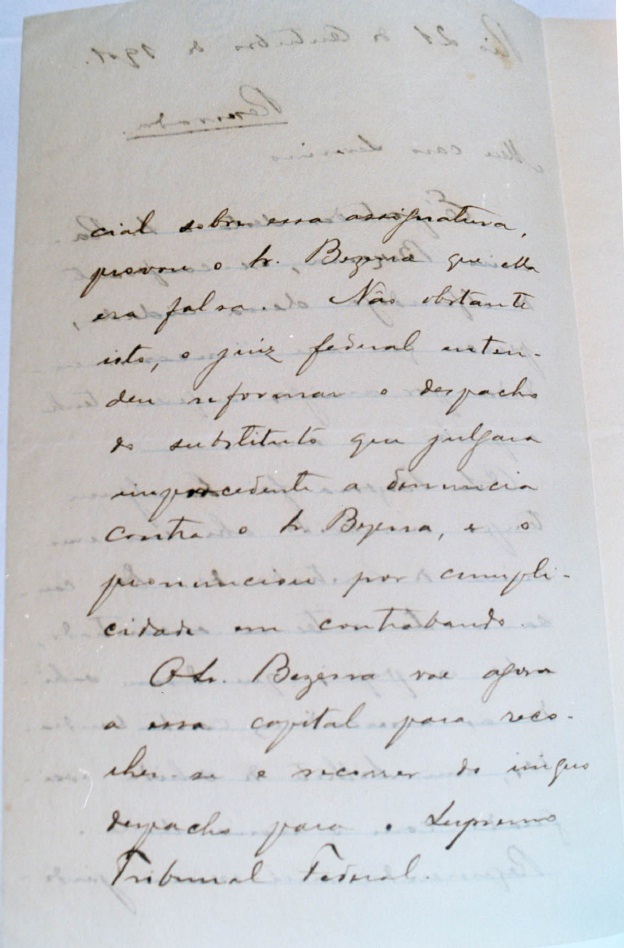 cial sobre essa assignatura,
provou o Sr. Bezerra que ella
era falsa. Não obstante
isto, o juiz federal enten-
deu reformar o despacho
do substituto que julgara
improcedente a denuncia
contra o Sr. Bezerra, e o
pronunciou por cumpli-
cidade em contrabando.
O Sr. Bezerra vae agora
a essa capital para reco-
lher se e recorrer do iniquo
despacho para o Supremo
Tribunal Federal.